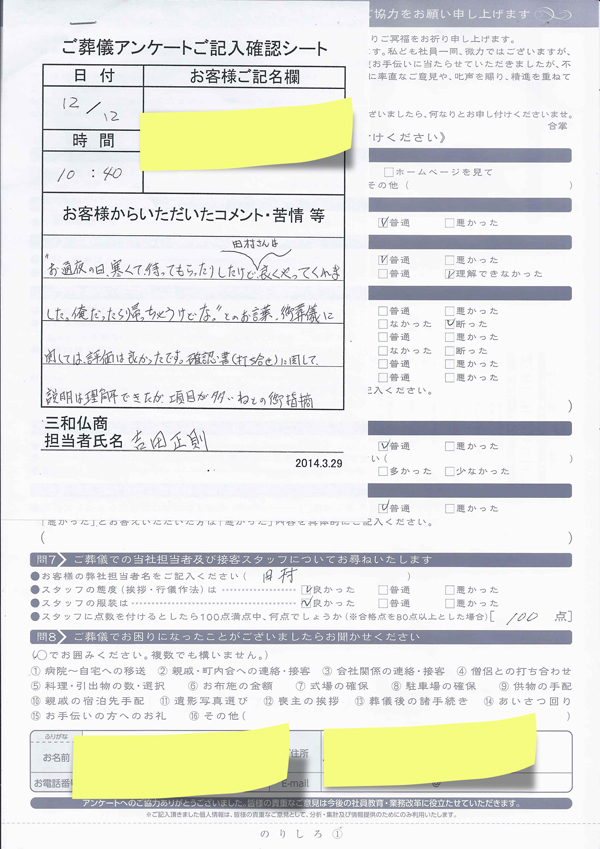 ご協力をお願い申し上げます
ご葬儀アンケートご記入確認シート
りご冥福をお祈り申し上げます。
す。私ども社員一同、微力ではございますが、
お手伝いに当たらせていただきましたが、不
に率直なご意見や、叱声を賜り、精進を重ねて
日 付
お客様ご記名欄
12/12
ざいましたら、何なりとお申し付けくださいませ。
合掌
時 間
付けください》
10 : 40
□ホームページを見て
その他 (
)
お客様からいただいたコメント・苦情 等
□普通 □悪かった
田村さんは
"お通夜の日、寒くて、待ってもらったりしたけど、良くやってくれま
□普通 □悪かった
□普通 □理解できなかった
した。俺だったら帰っちゃうけどな。"とのお言葉。御葬儀に
□普通 □悪かった
□なかった □断った
□普通 □悪かった
関しては、評価は良かったです。確認書(打ち合せ)に関して、
□なかった □断った
□普通 □悪かった
□普通 □悪かった
説明は理解できたが、項目が多いねとの御指摘
記入ください。
)
三和仏商
担当者氏名 吉田正則
□普通 □悪かった
ださい(
)
2014.3.29
□多かった □少なかった
□普通 □悪かった
「悪かった」とお答えいただいた方は「悪かった」内容を具体的にご記入ください。
(
)
問7 ご葬儀での当社担当者及び接客スタッフについてお尋ねいたします
●お客様の弊社担当者名をご記入ください ( 田村 )
●スタッフの態度(挨拶・行儀作法)は □良かった □普通 □悪かった
●スタッフの服装は □良かった □普通 □悪かった
●スタッフに点数を付けるとしたら100点満点中、何点でしょうか(※合格点を80点以上とした場合)[ 100 点]
問8 ご葬儀でお困りになったことがございましたらお聞かせください
(○でお囲みください。複数でも構いません。)
① 病院~自宅への移送 ② 親戚・町内会への連絡・接客 ③ 会社関係の連絡・接客 ④ 僧侶との打ち合わせ
⑤ 料理・引出物の数・選択 ⑥ お布施の金額 ⑦ 式場の確保 ⑧ 駐車場の確保 ⑨ 供物の手配
⑩ 親戚の宿泊先手配 ⑪ 遺影写真選び ⑫ 喪主の挨拶 ⑬ 葬儀後の諸手続き ⑭ あいさつ回り
⑮ お手伝いの方へのお礼 ⑯ その他(
)
ふりがな
お名前
ご住所
お電話番号
E-mail
@
アンケートへのご協力ありがとうございました。皆様の貴重なご意見は今後の社員教育・業務改革に役立たせていただきます。
※ご記入頂きました個人情報は、皆様の貴重なご意見として、分析・集計及び情報提供のためにのみ利用いたします。
のりしろ①